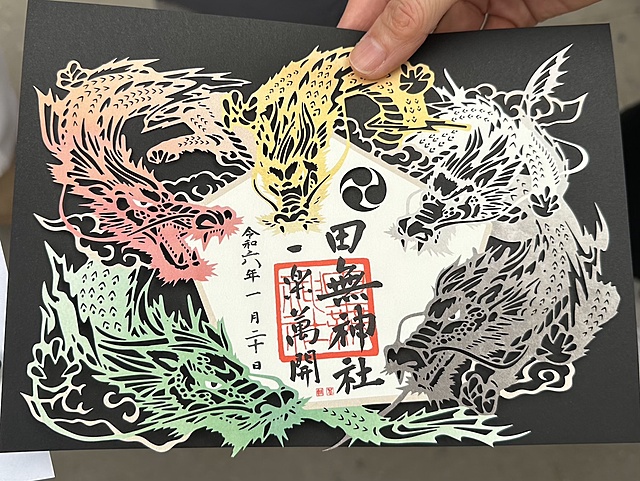 田無神社
一楽萬開
令和六年一月二十日